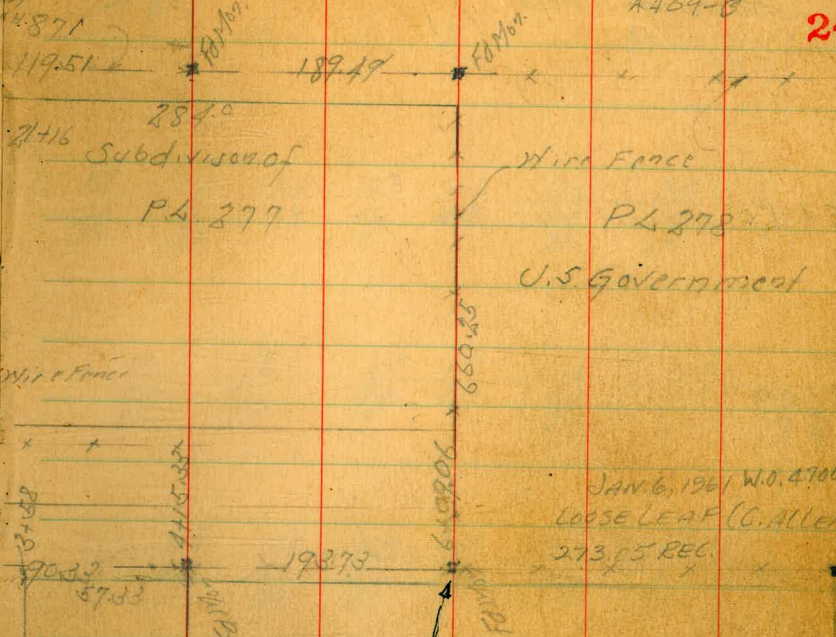 871
Fd Mon.
Fd Mon.
2
119.51
189.49
284.0
21+16
Subdivison of
Wire Fence
PL 277
PL 278
U.S. Government
660.25
Wire Fence
3+58
4+15.33
6+09.06
JAN. 6, 1961 W.O. 4700
LOOSE LEAF (C. ALLE
273.15 REC.
90.33
193.73
57.33
Fd Mon
4
Fd Mon